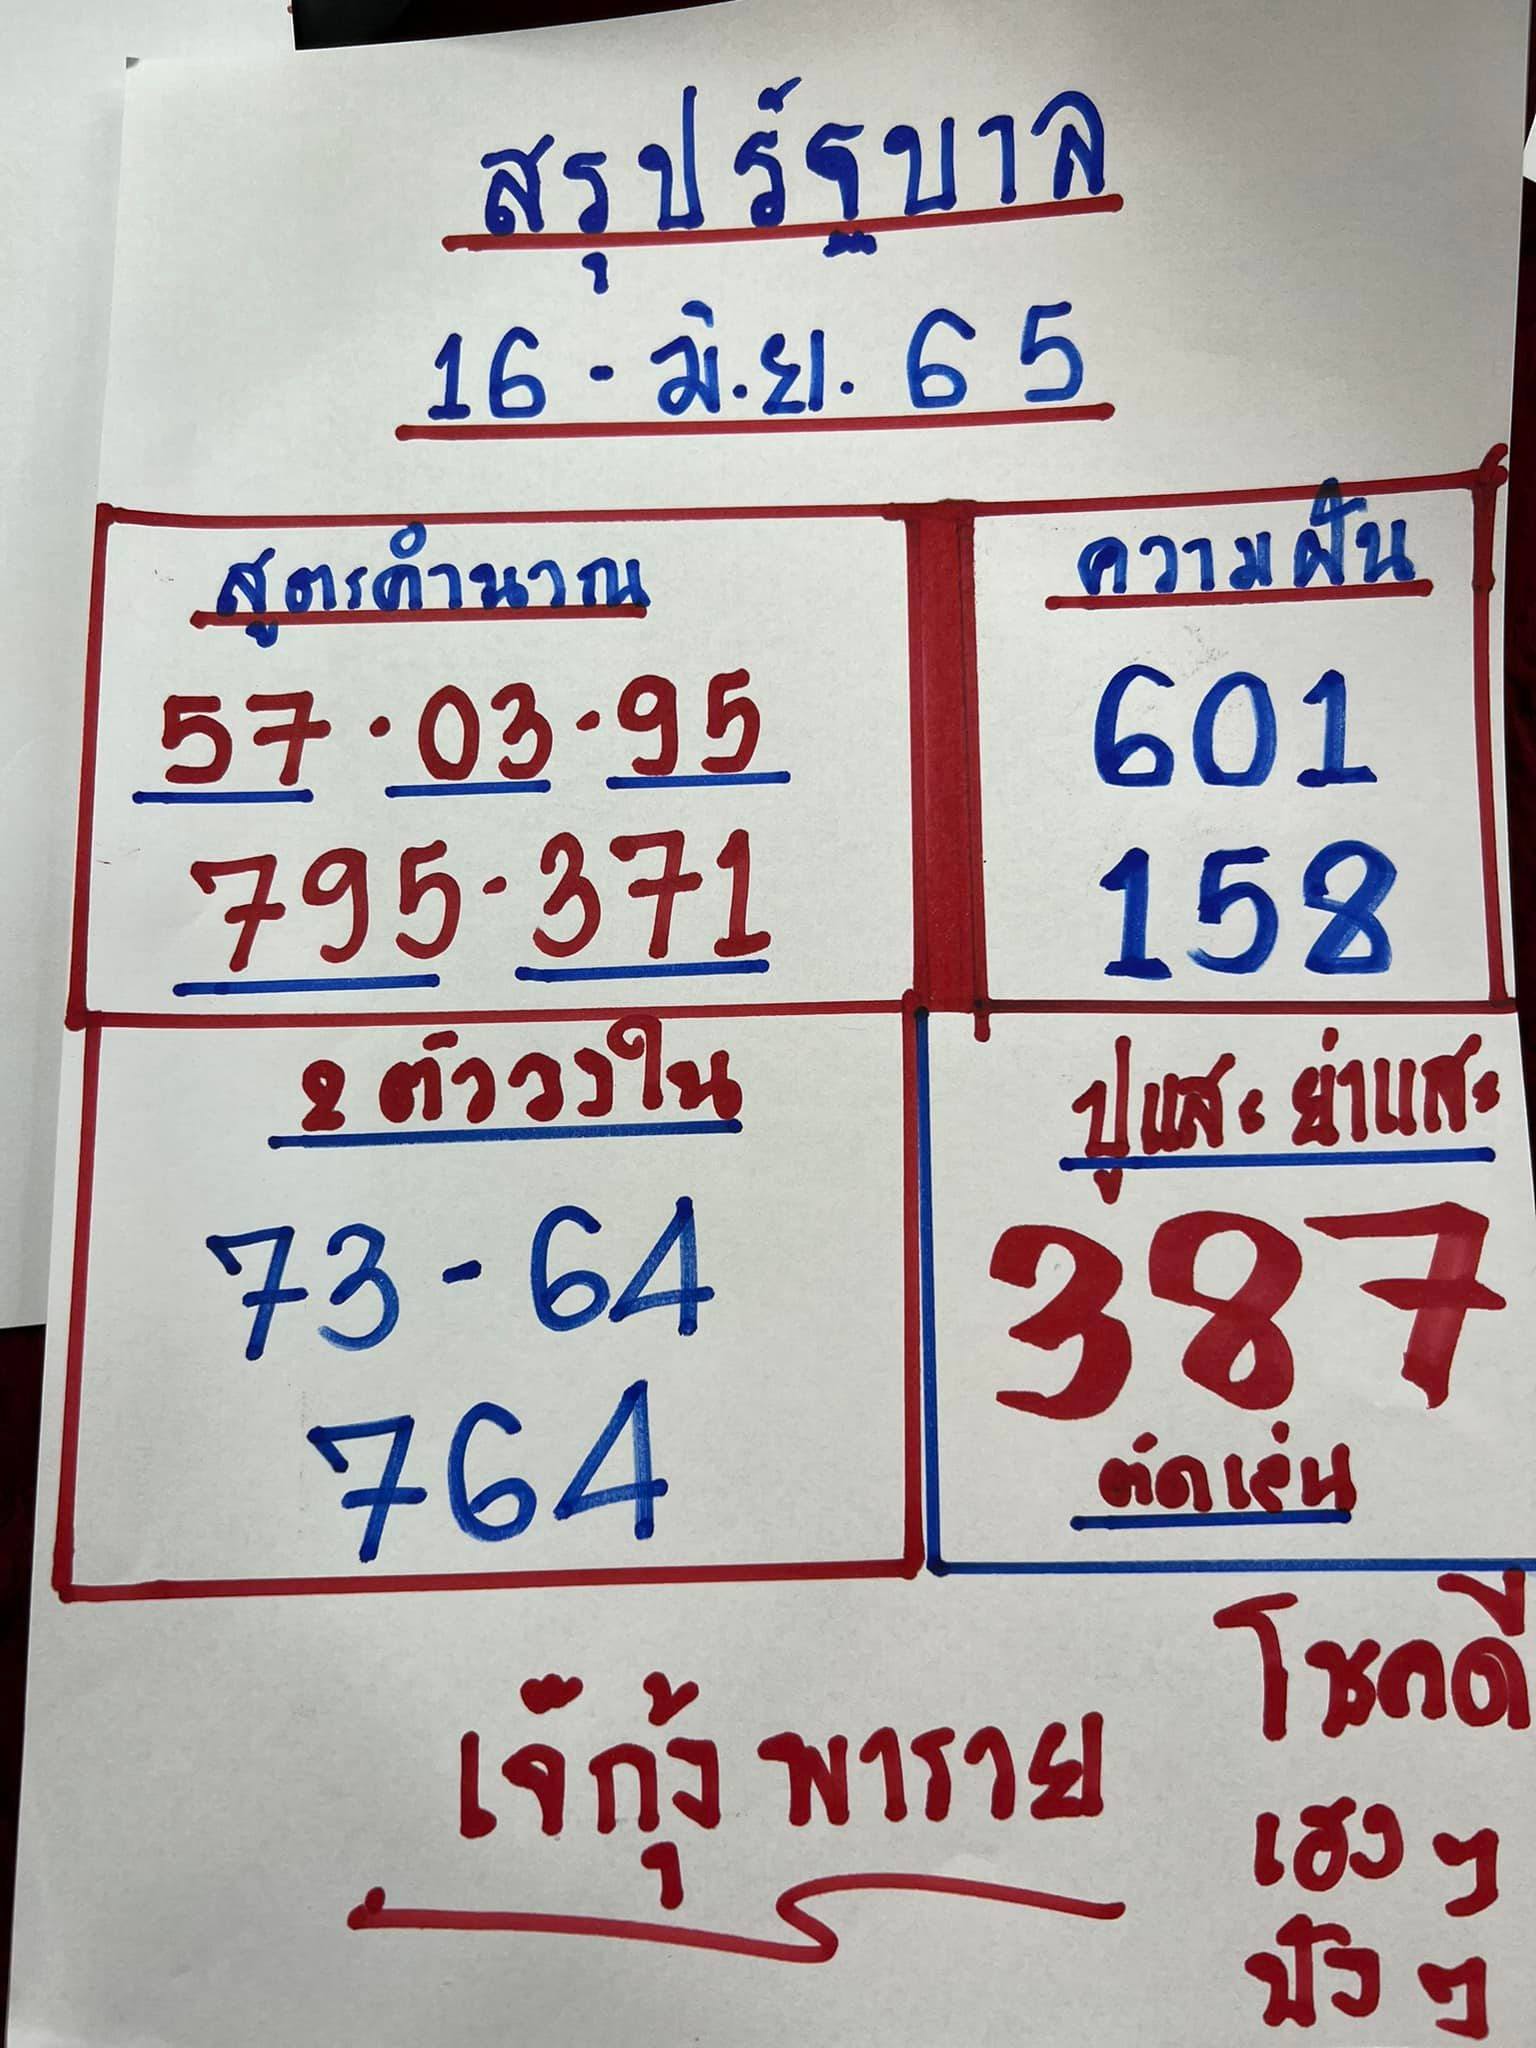 สรุปรัฐบาล
16 - มิ.ย. 65
สูตรคำนวณ
57 · 03 · 95
795 - 371
ความฝัน
601
158
2 ตัววงใน
73 - 64
764
ปู่แสะ ย่าแสะ
387
ตัดเล่น
เจ๊กุ้ง พาราย
โชคดี
เฮงๆ
ปังๆ